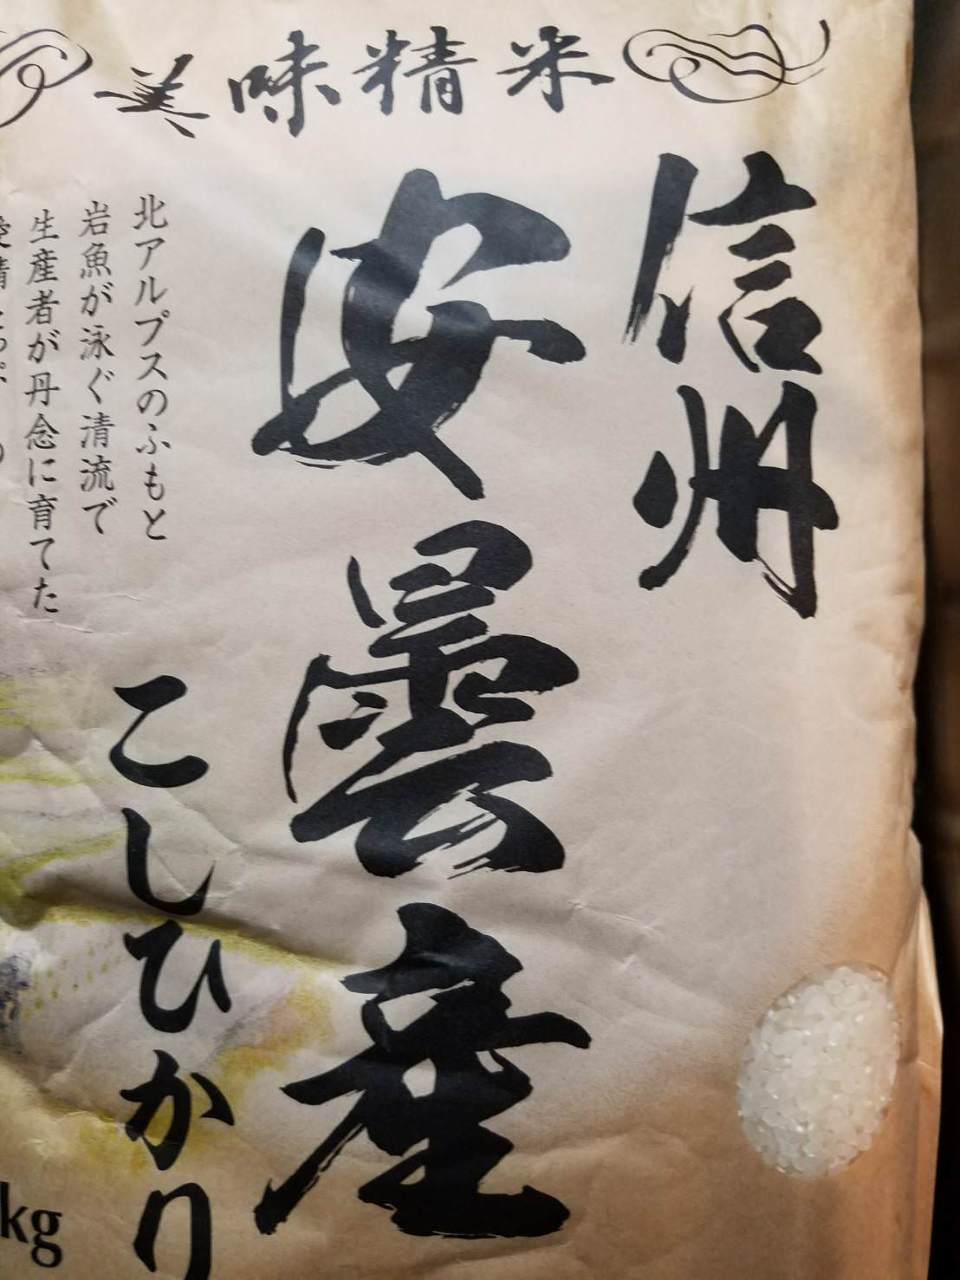 美味精米
信州
安曇産
北アルプスのふもと
岩魚が泳ぐ清流で
生産者が丹念に育てた
こしひかり
kg